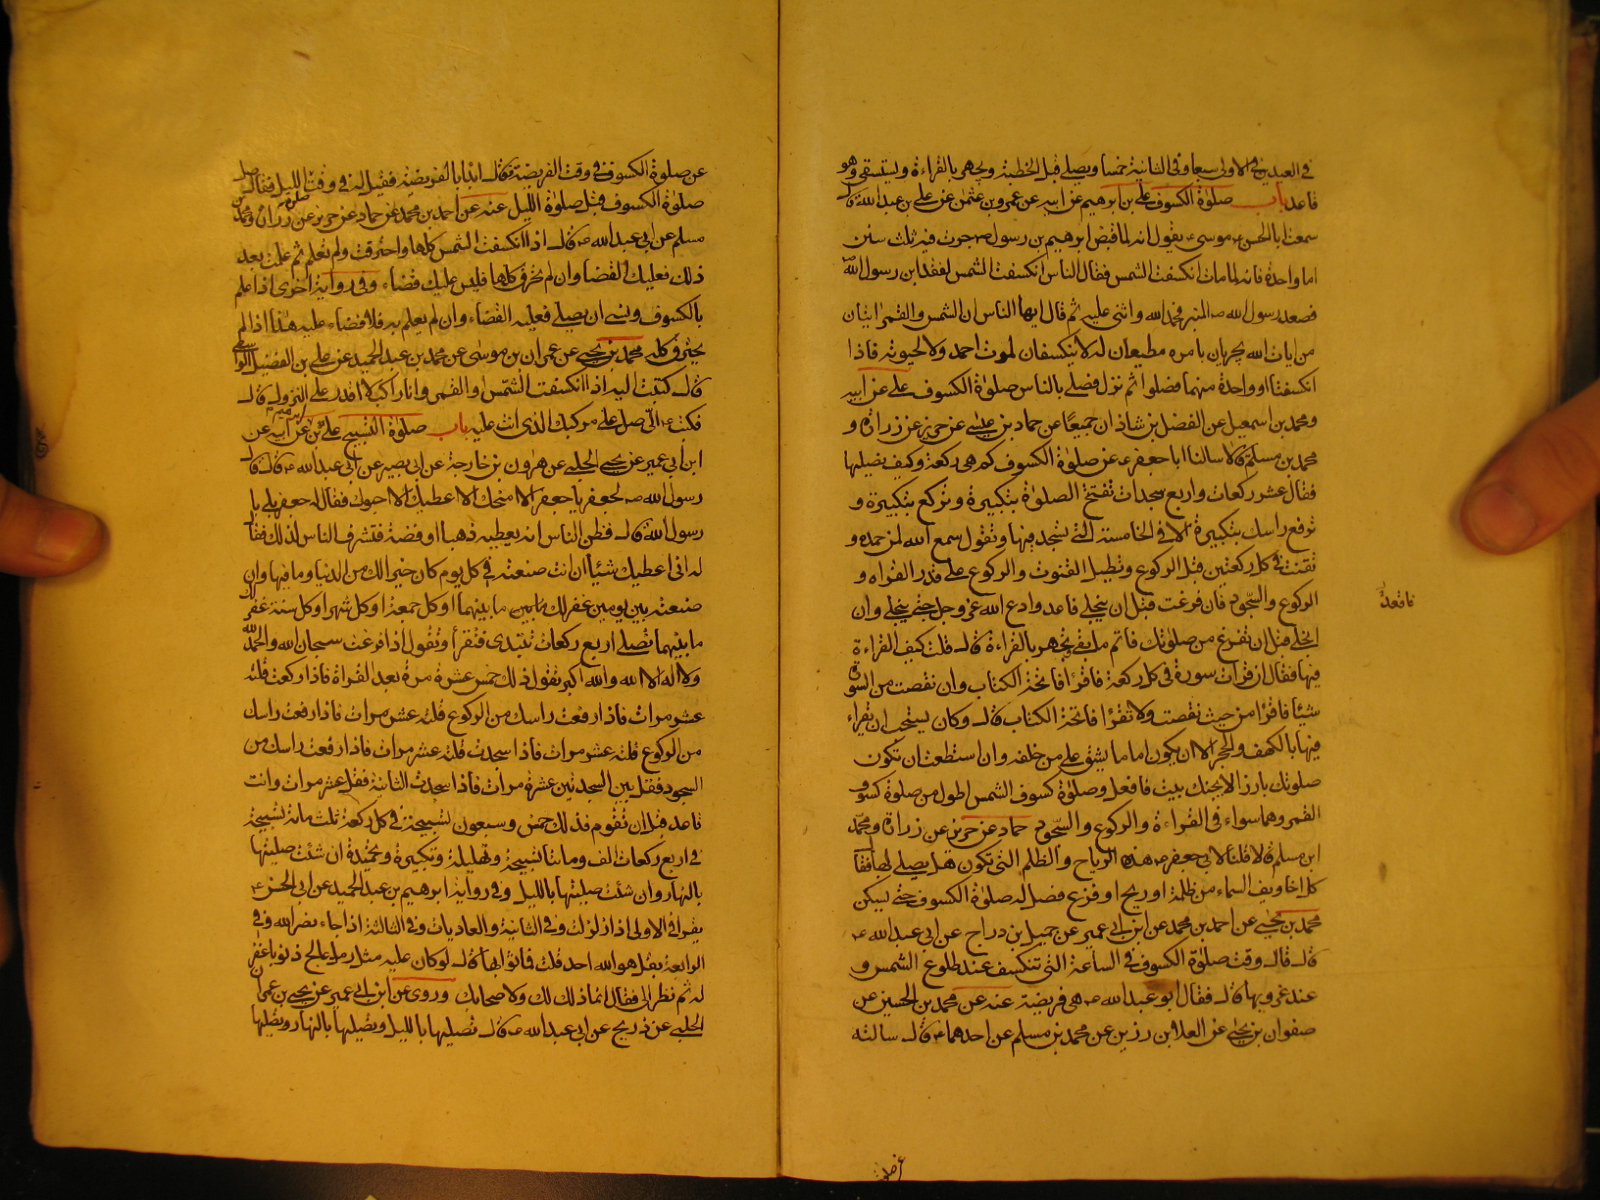 في العيدين في الاولى سبعا وفي الثانية خمسا ويصلي قبل الخطبة ويجهر بالقراءة ويستسقي وهو
قاعد باب صلوة الكسوف علي بن ابرهيم عن ابيه عن عمرو بن عثمن عن علي بن عبد الله قال
سمعت ابا الحسن موسى ع يقول انه لما قبض ابرهيم بن رسول ص جرت فيه ثلث سنن
اما واحدة فانه لما مات انكسفت الشمس فقال الناس انكسفت الشمس لفقد ابن رسول الله ص
فصعد رسول الله ص المنبر فحمد الله واثنى عليه ثم قال ايها الناس ان الشمس والقمر ايتان
من ايات الله يجريان بامره مطيعان له لا ينكسفان لموت احد ولا لحيوته فاذا
انكسفتا او واحدة منهما فصلوا ثم نزل فصلى بالناس صلوة الكسوف علي عن ابيه
ومحمد بن اسمعيل عن الفضل بن شاذان جميعا عن حماد بن عيسى عن حريز عن زرارة و
محمد بن مسلم قالا سالنا ابا جعفر ع عن صلوة الكسوف كم هي ركعة وكيف يصليها
فقال عشر ركعات واربع سجدات تفتتح الصلوة بتكبيرة وتركع بتكبيرة و
ترفع راسك بتكبيرة الا في الخامسة التي تسجد فيها وتقول سمع الله لمن حمده و
تقنت في كل ركعتين قبل الركوع وتطيل القنوت والركوع على قدر القراءة و
الركوع والسجود فان فرغت قبل ان ينجلي قاعد وادع الله عز وجل حتى ينجلي وان
فاقعد
انجلى قبل ان تفرغ من صلوتك فاتم ما بقي وتجهر بالقراءة قال قلت كيف القراءة
فيها فقال ان قرات سورة في كل ركعة فاقرا فاتحة الكتاب وان نقصت من السورة
شيئا فاقرا من حيث نقصت ولا تقرا فاتحة الكتاب قال وكان يستحب ان يقراء
فيها بالكهف والحجر الا ان يكون اماما يشق على من خلفه وان استطعت ان تكون
صلوتك بارزا لا يجنك بيت فافعل وصلوة كسوف الشمس اطول من صلوة كسوف
القمر وهما سواء في القراءة والركوع والسجود حماد عن حريز عن زرارة ومحمد
ابن مسلم قالا قلنا لابي جعفر ع هذه الرياح والظلم التي تكون هل يصلى لها فقال
كل اخاويف السماء من ظلمة او ريح او فزع فصل له صلوة الكسوف حتى يسكن
محمد بن يحيى عن احمد بن محمد عن ابن ابي عمير عن جميل بن دراج عن ابي عبد الله ع
قال قال وقت صلوة الكسوف في الساعة التي تنكسف عند طلوع الشمس و
عند غروبها قال فقال ابو عبد الله ع هي فريضة عنه عن محمد بن الحسين عن
صفوان بن يحيى عن العلا بن رزين عن محمد بن مسلم عن احدهما ع قال سالته
عن صلوة الكسوف في وقت الفريضة فقال ابدا بالفريضة فقيل له في وقت الليل فقال صل
صلوة الكسوف قبل صلوة الليل عنه عن احمد بن محمد عن حماد عن حريز عن زرارة ومحمد بن
مسلم عن ابي عبد الله ع قال اذا انكسفت الشمس كلها واحترقت ولم تعلم ثم علمت بعد
ذلك فعليك القضا وان لم تحرق كلها فليس عليك قضاء وفي رواية اخرى اذا علم
بالكسوف ونسي ان يصلي فعليه القضاء وان لم يعلم به فلا قضاء عليه هذا اذا لم
يحترق كله محمد بن يحيى عن عمران بن موسى عن محمد بن عبد الحميد عن علي بن الفضل الواسطي
قال كتبت اليه اذا انكسفت الشمس والقمر وانا راكب لا اقدر على النزول قال
فكتب ع الي صل على مركبك الذي انت عليه باب صلوة التسبيح علي بن ابرهيم عن ابيه عن
ابن ابي عمير عن يحيى الحلبي عن هرون بن خارجة عن ابي بصير عن ابي عبد الله ع قال قال
رسول الله ص لجعفر يا جعفر الا امنحك الا اعطيك الا احبوك فقال له جعفر بلى يا
رسول الله قال فظن الناس انه يعطيه ذهبا او فضة فتشرف الناس لذلك فقال
له اني اعطيك شيئا ان انت صنعته في كل يوم كان خيرا لك من الدنيا وما فيها وان
صنعته بين يومين غفر لك ما بينهما او كل جمعة او كل شهر او كل سنة غفر لك
ما بينهما تصلي اربع ركعات تبتدئ فتقرأ وتقول اذا فرغت سبحان الله والحمد لله
ولا اله الا الله والله اكبر تقول ذلك خمس عشرة مرة بعد القراة فاذا ركعت قلته
عشر مرات فاذا رفعت راسك من الركوع قلته عشر مرات فاذا رفعت راسك
من الركوع قلته عشر مرات فاذا سجدت قلته عشر مرات فاذا رفعت راسك من
السجود فقل بين السجدتين عشرة مرات فاذا سجدت الثانية فقل عشر مرات وانت
قاعد قبل ان تقوم فذلك خمس وسبعون تسبيحة في كل ركعة ثلث مائة تسبيحة
في اربع ركعات الف ومائتا تسبيحة وتهليلة وتكبيرة وتحميدة ان شئت صليتها
بالنهار وان شئت صليتها بالليل وفي رواية ابرهيم بن عبد الحميد عن ابي الحسن ع
يقرا في الاولى اذا زلزلت وفي الثانية والعاديات وفي الثالثة اذا جاء نصر الله وفي
الرابعة بقل هو الله احد قلت فما ثوابها قال لو كان عليه مثل رمل عالج ذنوبا غفر
له ثم نظر الي فقال انما ذلك لك ولاصحابك وروي عن ابن ابي عمير عن يحيى بن عمران
الحلبي عن ذريح عن ابي عبد الله ع قال تصليها بالليل وتصليها بالنهار وتصليها